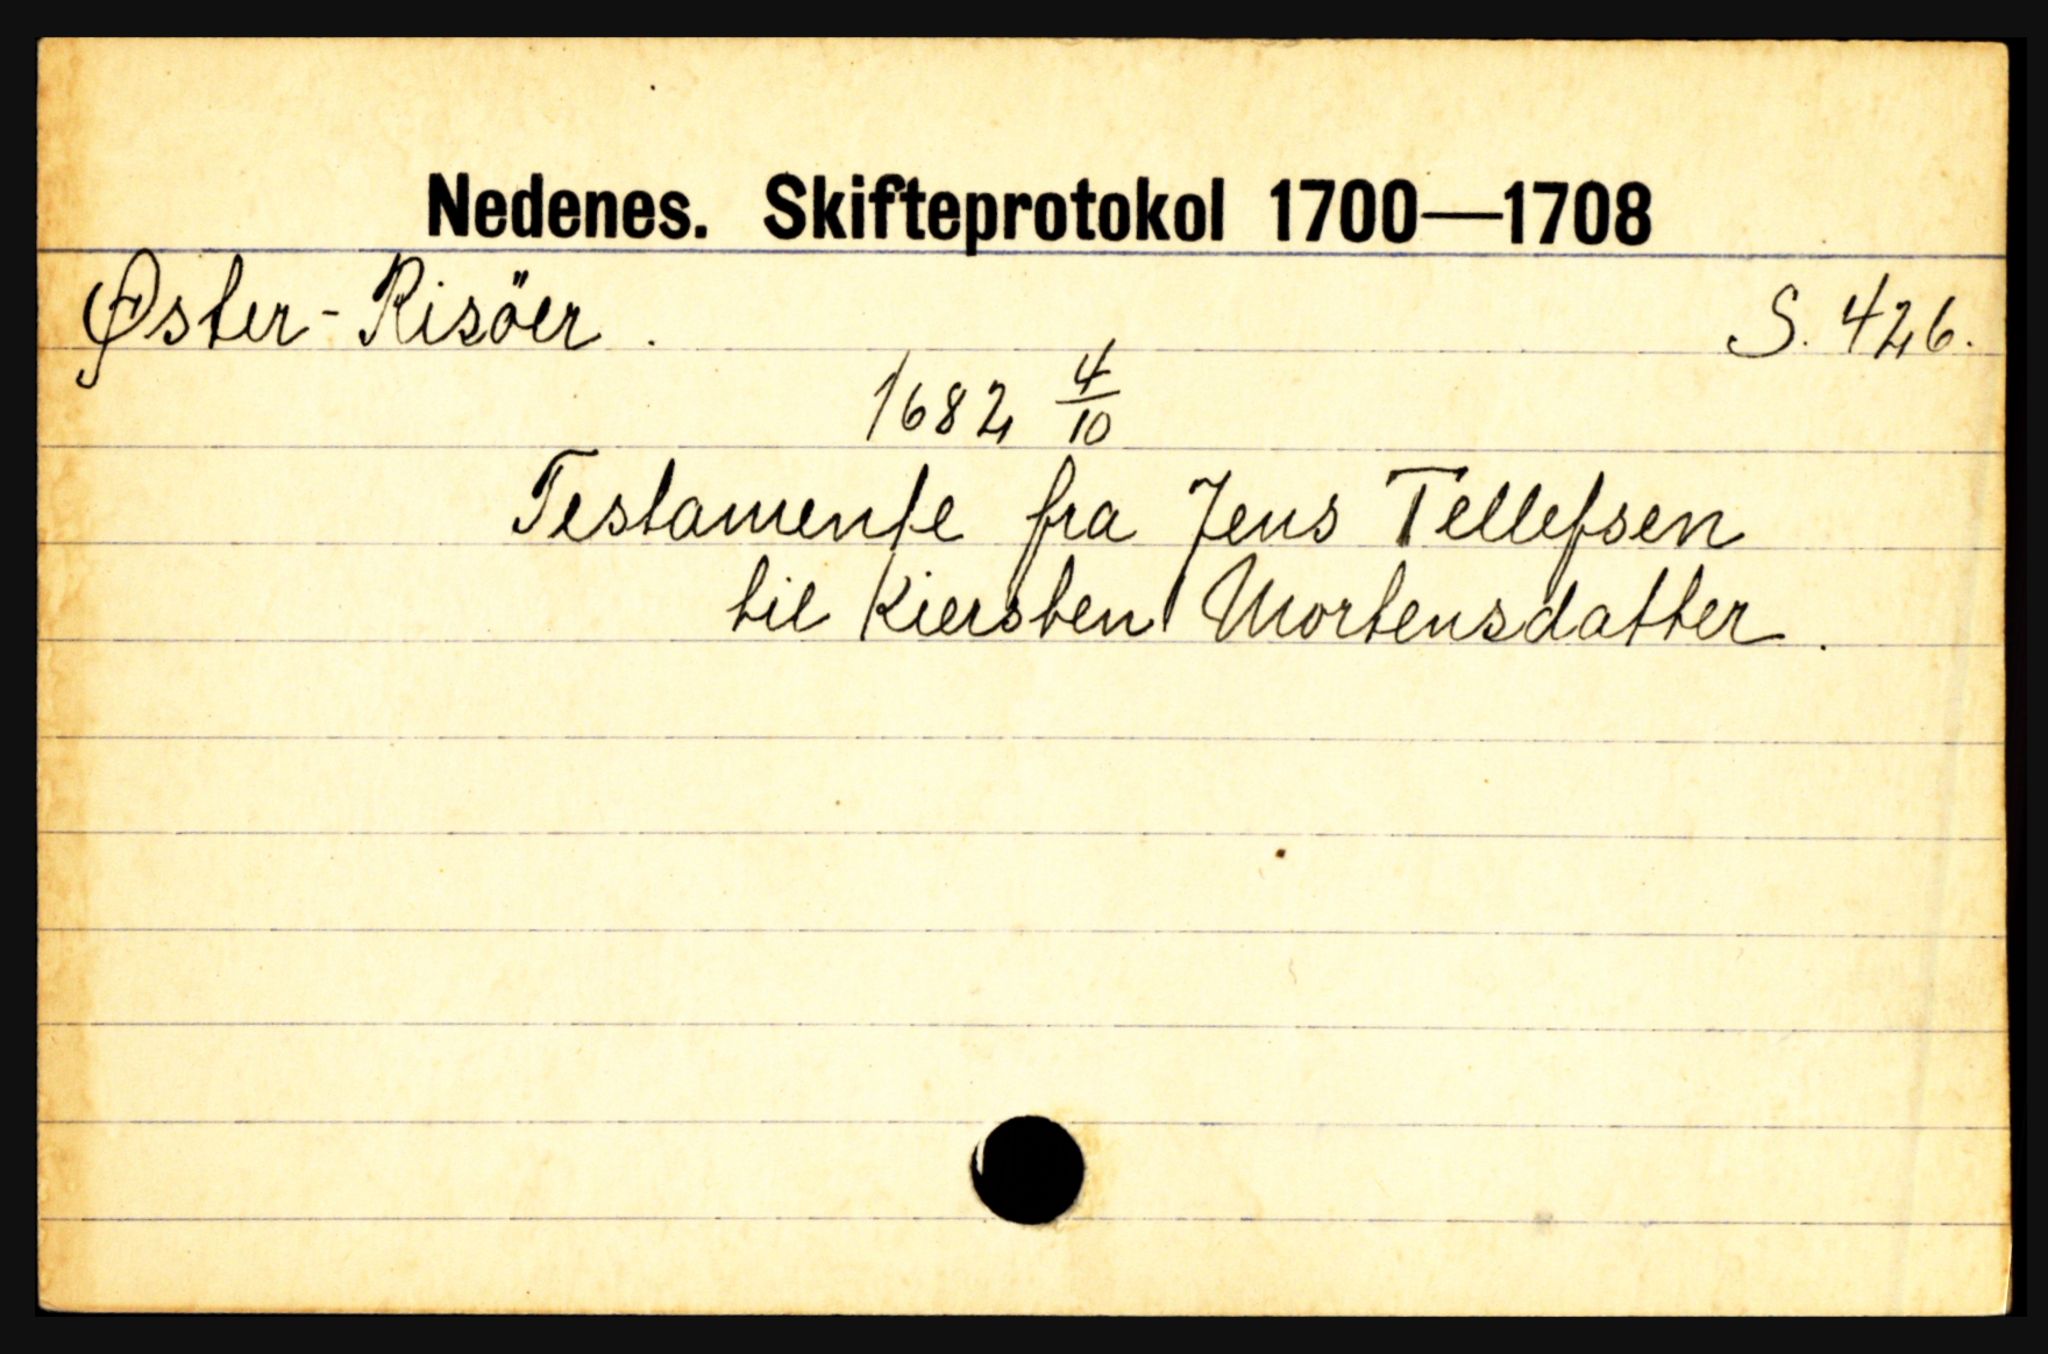 Nedenes. Skifteprotokol 1700—1708
Øster-Risöer. S. 426.
1682 4/10
Testamente fra Jens Tellefsen
til Kiersten Mortensdatter.